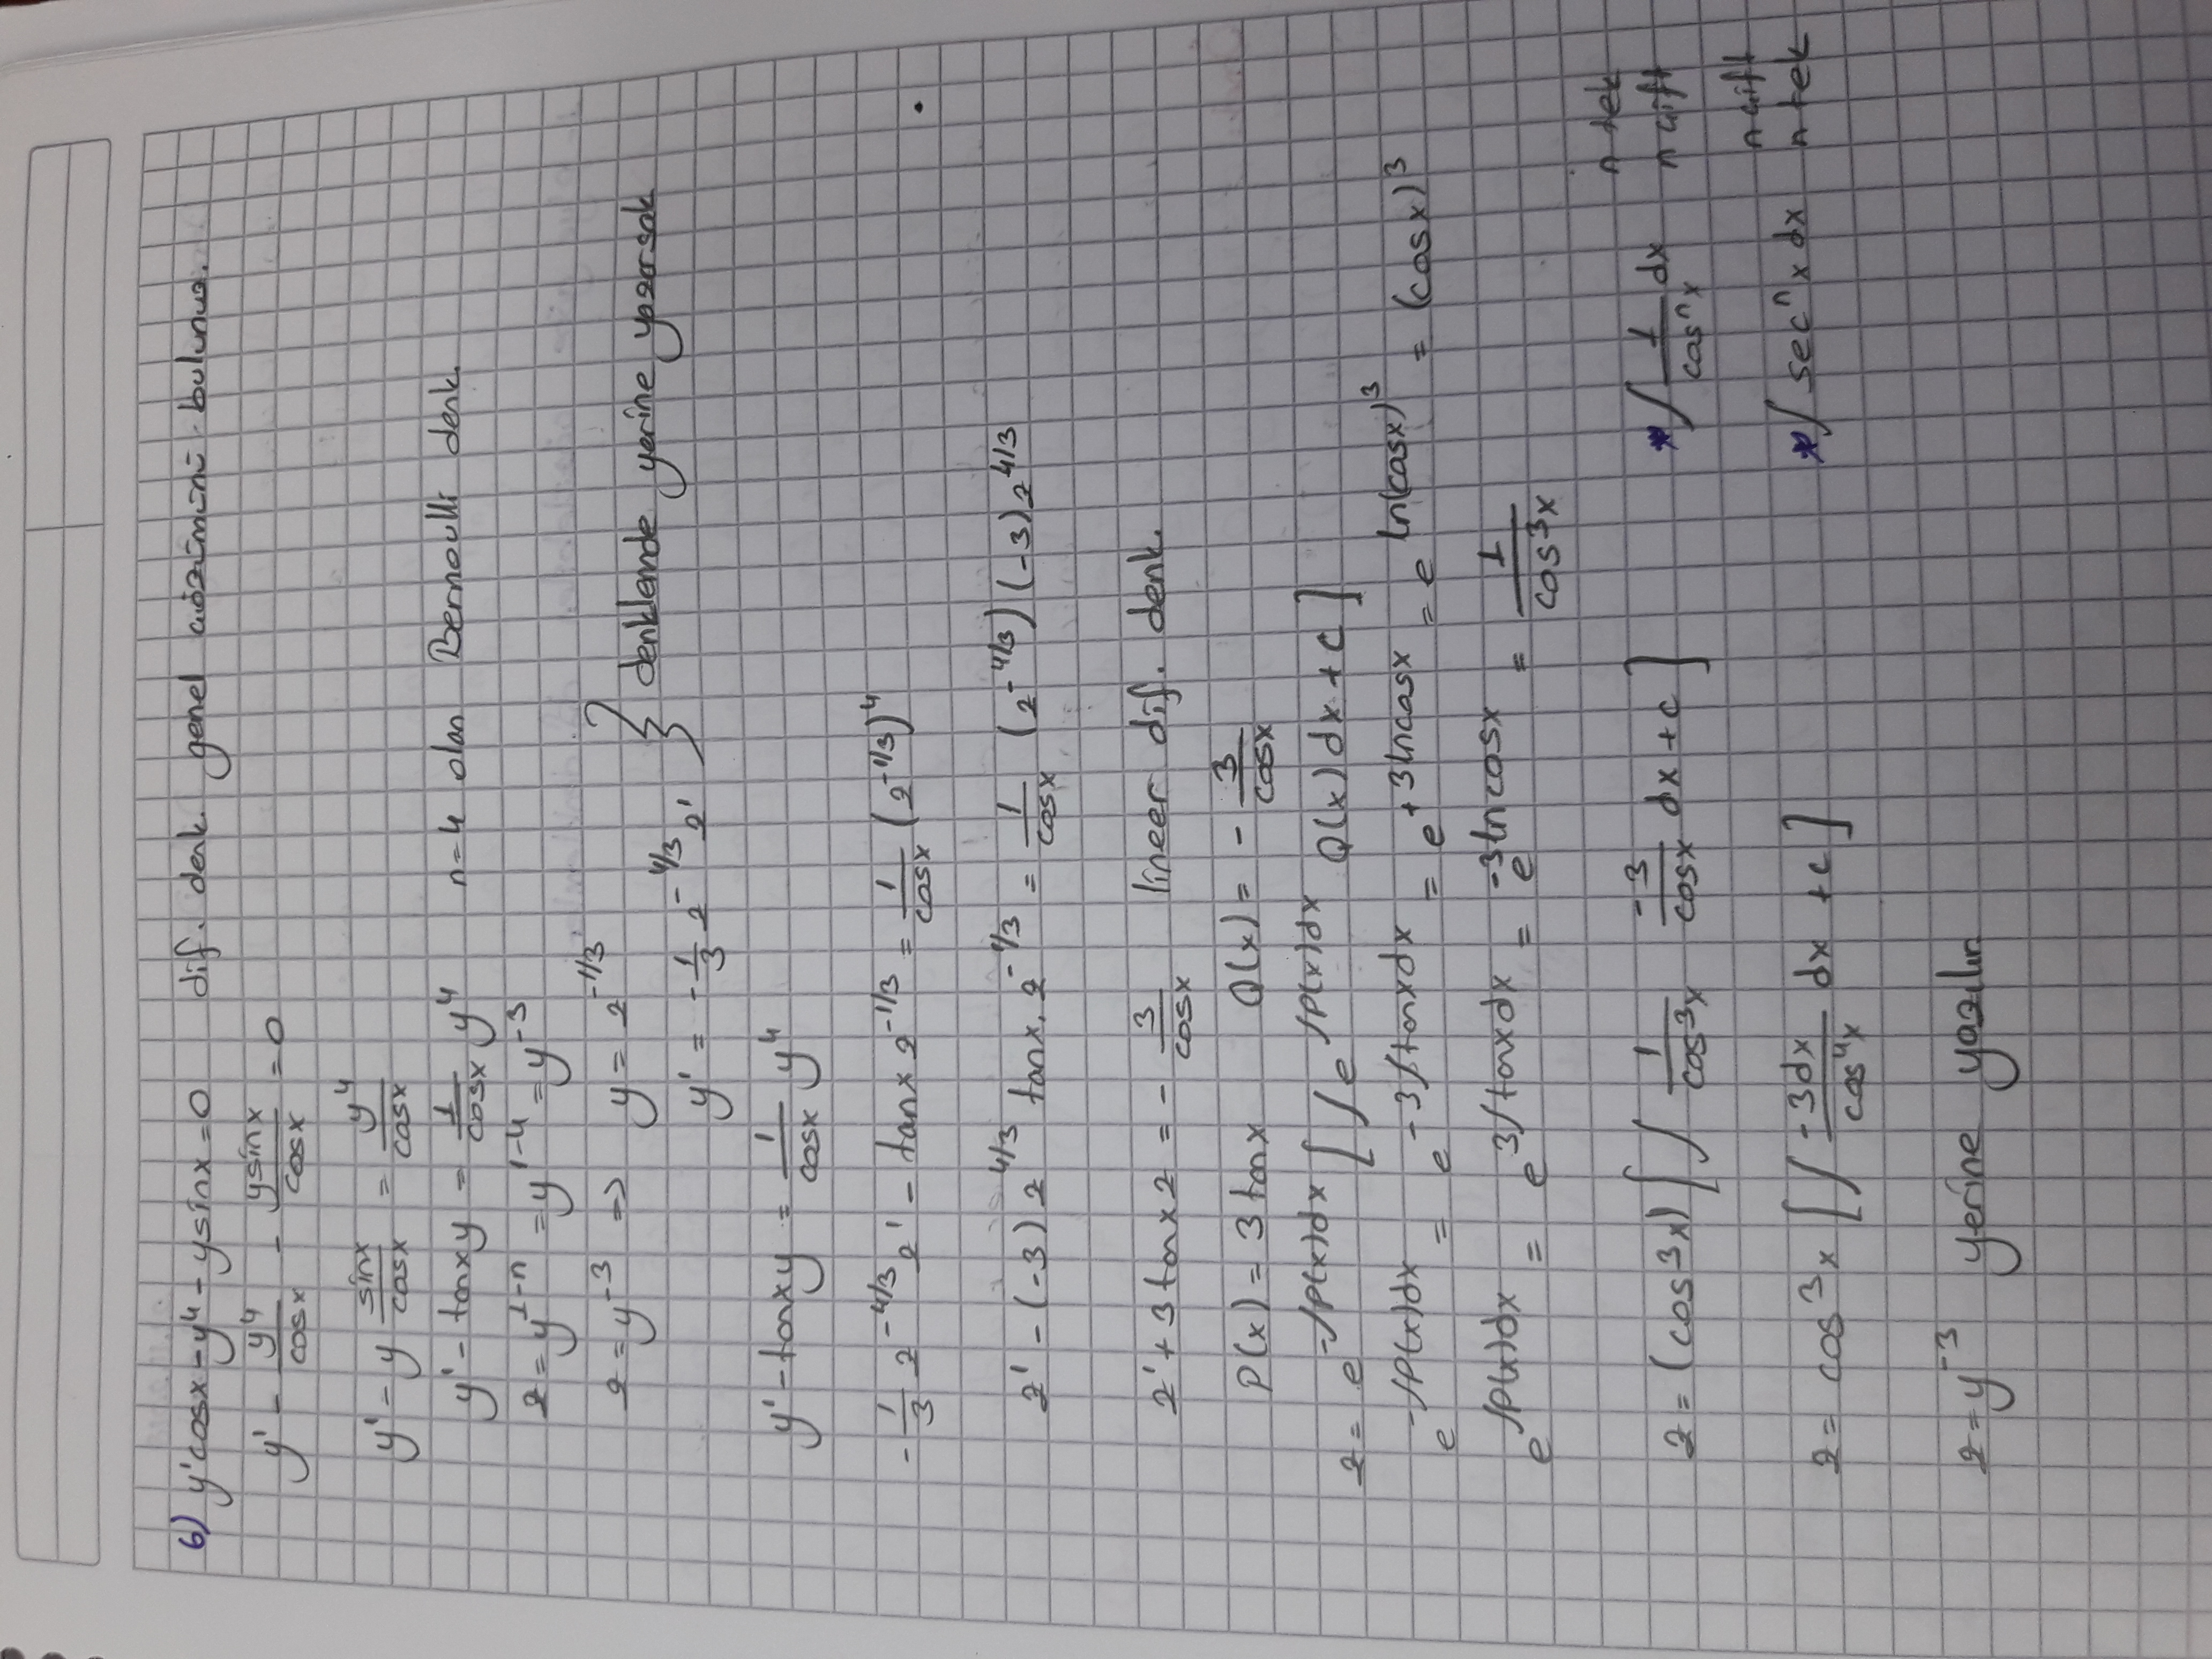 6) y'cosx - y⁴ - ysinx = 0 dif. denk. genel çözümünü bulunuz.
y' - y⁴/cosx - ysinx/cosx = 0
y' - y sinx/cosx = y⁴/cosx
y' - tanxy = 1/cosx y⁴ n=4 olan Bernoulli denk.
z = y^(1-n) = y^(1-4) = y^(-3)
z = y^(-3) => y = z^(-1/3)
y' = -1/3 z^(-4/3) z' } denklemde yerine yazarsak
y' - tanxy = 1/cosx y⁴
-1/3 z^(-4/3) z' - tanx z^(-1/3) = 1/cosx (z^(-1/3))⁴
z' - (-3) z^(4/3) tanx. z^(-1/3) = 1/cosx (z^(-4/3)) (-3) z^(4/3)
z' + 3tanx z = - 3/cosx lineer dif. denk.
P(x) = 3tanx Q(x) = - 3/cosx
z = e^(-∫P(x)dx) [ ∫ e^(∫P(x)dx) Q(x) dx + c ]
e^(-∫P(x)dx) = e^(-3∫tanxdx) = e^(+3lncosx) = e^(ln(cosx)³) = (cosx)³
e^(∫P(x)dx) = e^(3∫tanxdx) = e^(-3lncosx) = 1/cos³x
z = (cos³x) [ ∫ 1/cos³x -3/cosx dx + c ]
* ∫ 1/cosⁿx dx n tek n çift
z = cos³x [ ∫ -3dx/cos⁴x dx + c ]
* ∫ secⁿx dx n çift n tek
z = y^(-3) yerine yazılır